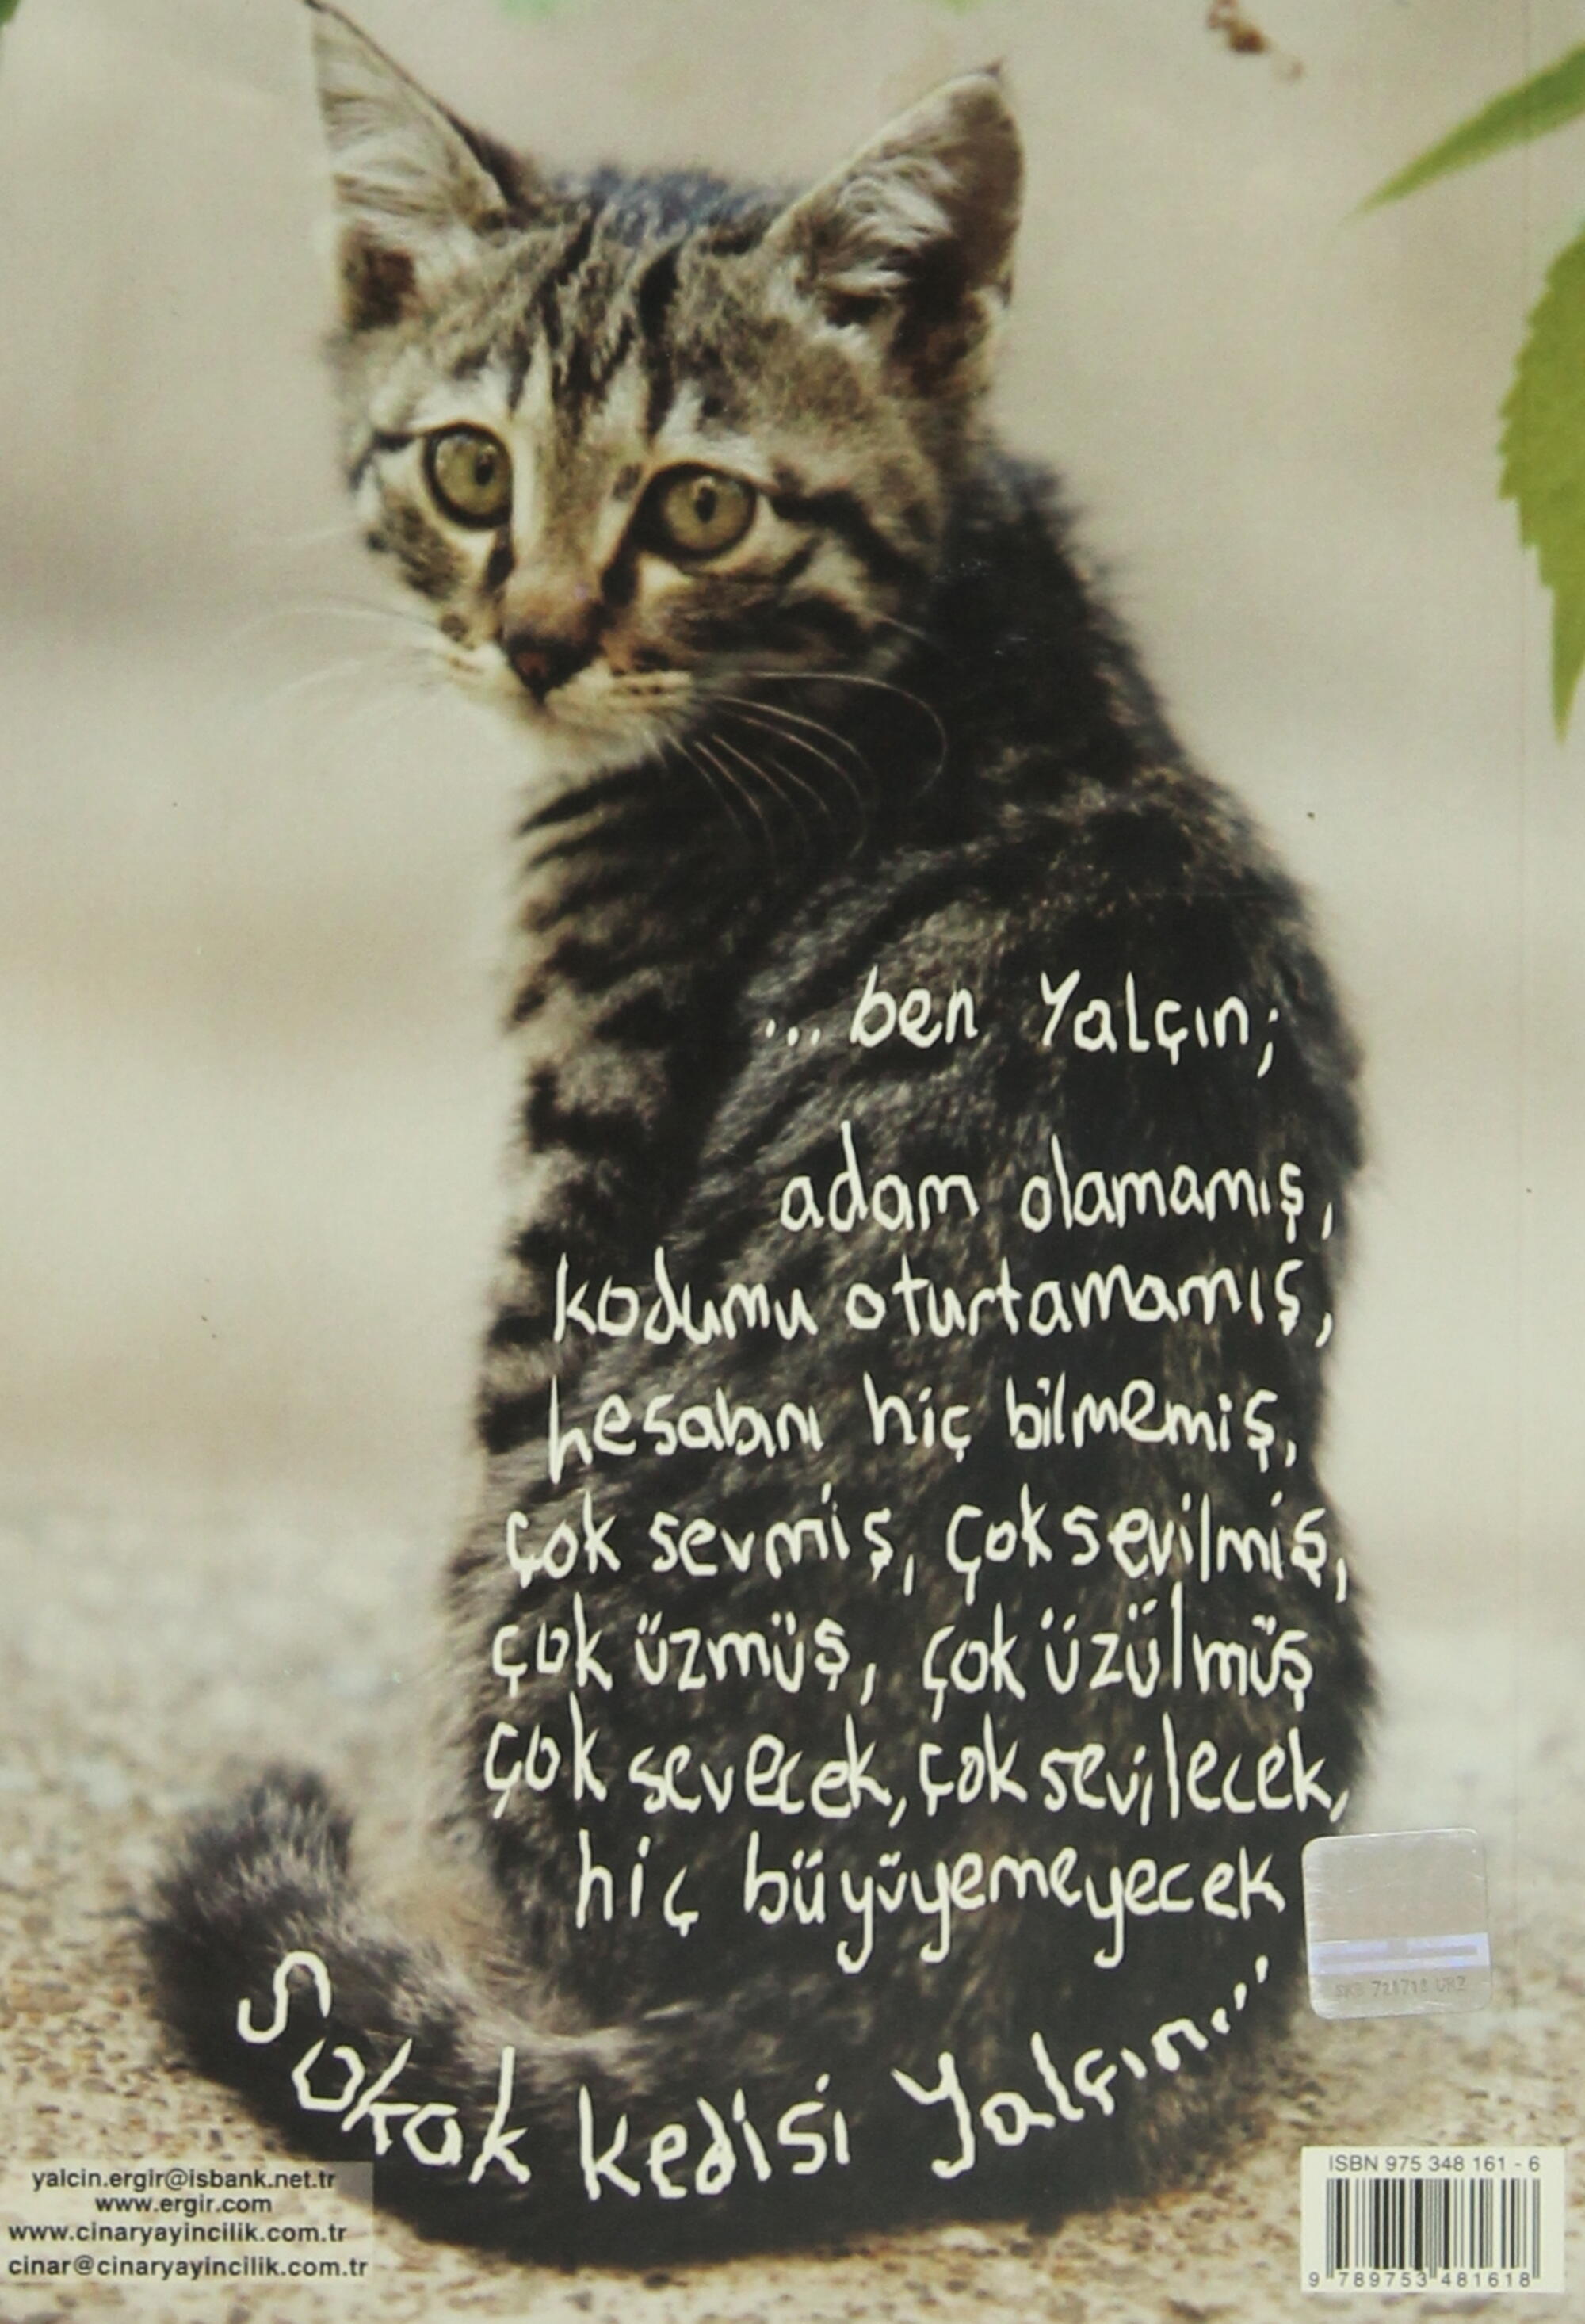 ... ben Yalçın;
adam olamamış,
kodumu oturtamamış,
hesabını hiç bilmemiş,
çok sevmiş, çok sevilmiş,
çok üzmüş, çok üzülmüş
çok sevecek, çok sevilecek,
hiç büyüyemeyecek
Sokak kedisi Yalçın...''
yalcin.ergir@isbank.net.tr
www.ergir.com
www.cinaryayincilik.com.tr
cinar@cinaryayincilik.com.tr
ISBN 975 348 161 - 6
9 789753 481618